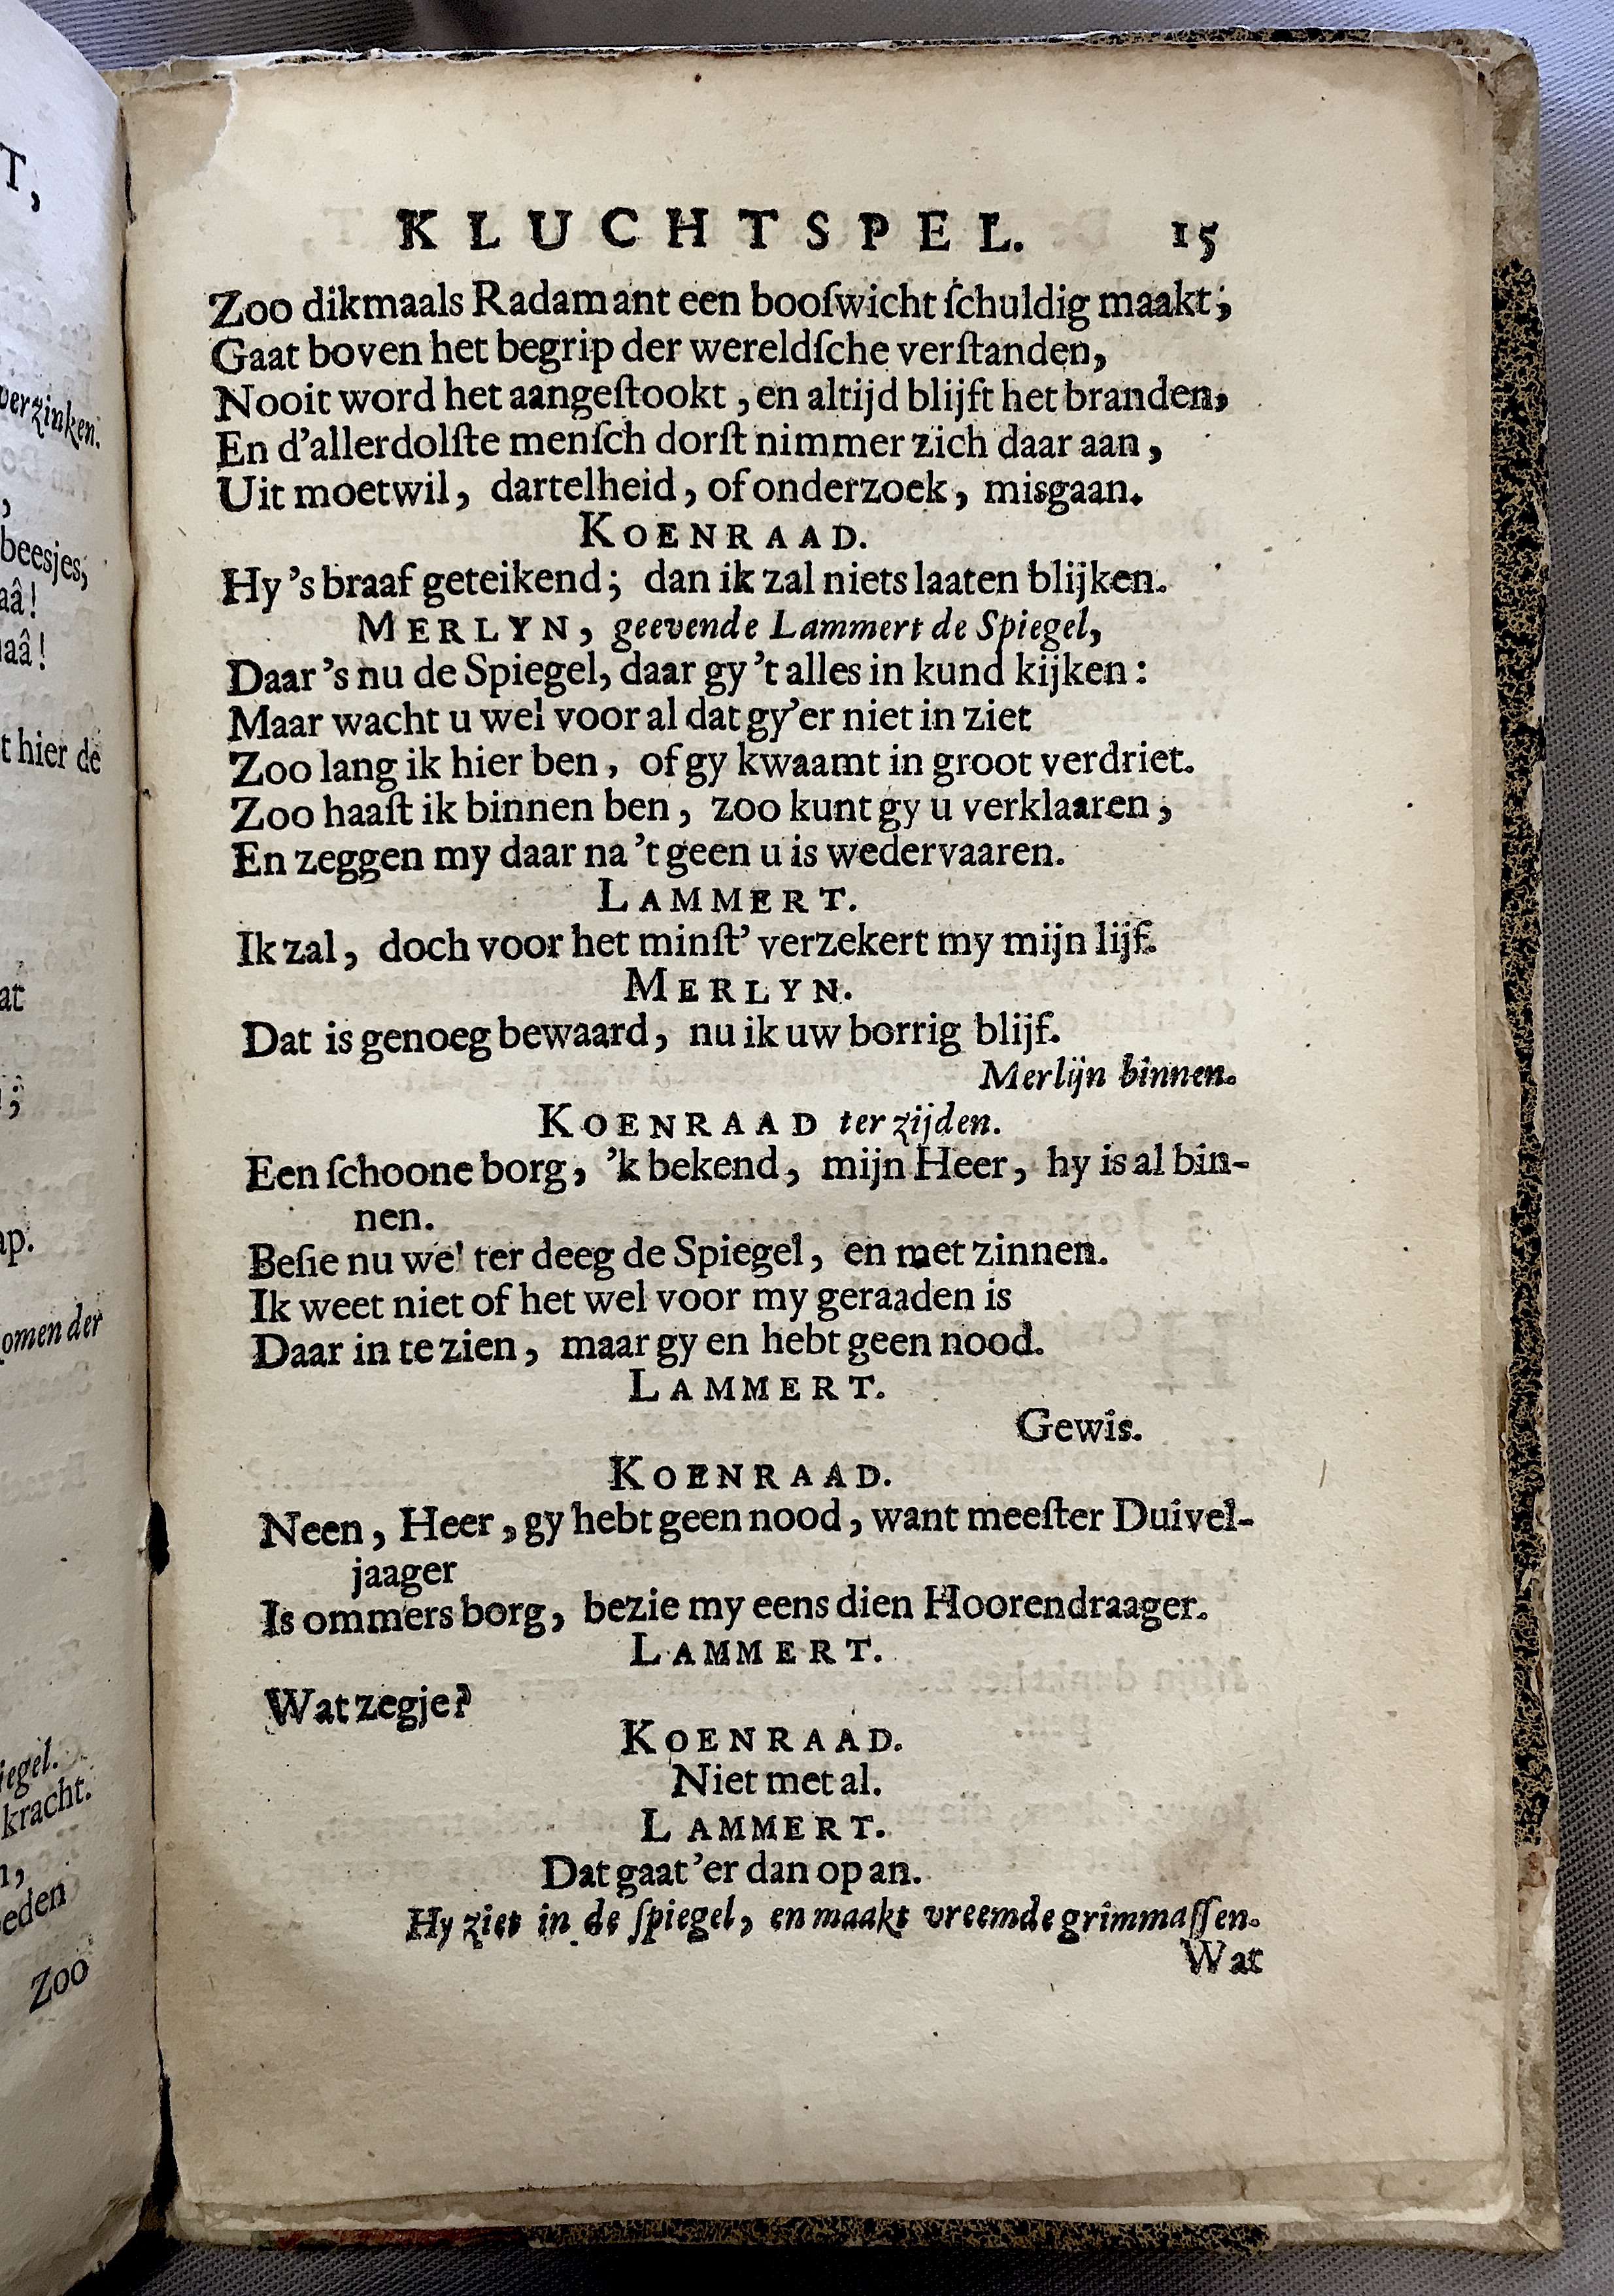 KLUCHTSPEL. 15
Zoo dikmaals Radamant een booſwicht ſchuldig maakt;
Gaat boven het begrip der wereldſche verſtanden,
Nooit word het aangeſtookt, en altijd blijft het branden,
En d'allerdolſte menſch dorſt nimmer zich daar aan,
Uit moetwil, dartelheid, of onderzoek, misgaan.
KOENRAAD.
Hy 's braaf geteikend; dan ik zal niets laaten blijken.
MERLYN, geevende Lammert de Spiegel,
Daar 's nu de Spiegel, daar gy 't alles in kund kijken:
Maar wacht u wel voor al dat gy'er niet in ziet
Zoo lang ik hier ben, of gy kwaamt in groot verdriet.
Zoo haaſt ik binnen ben, zoo kunt gy u verklaaren,
En zeggen my daar na 't geen u is wedervaaren.
LAMMERT.
Ik zal, doch voor het minſt' verzekert my mijn lijf.
MERLYN.
Dat is genoeg bewaard, nu ik uw borrig blijf.
Merlijn binnen.
KOENRAAD ter zijden.
Een ſchoone borg, 'k bekend, mijn Heer, hy is al bin-
nen.
Beſie nu wel ter deeg de Spiegel, en met zinnen.
Ik weet niet of het wel voor my geraaden is
Daar in te zien, maar gy en hebt geen nood.
LAMMERT.
Gewis.
KOENRAAD.
Neen, Heer, gy hebt geen nood, want meeſter Duivel-
jaager
Is ommers borg, bezie my eens dien Hoorendraager.
LAMMERT.
Wat zegje?
KOENRAAD.
Niet met al.
LAMMERT.
Dat gaat 'er dan op an.
Hy ziet in de ſpiegel, en maakt vreemde grimmaſſen.
Wat
T,
verzinken.
beesjes,
aâ!
aâ!
t hier de
at
ap.
komen der
iegel.
kracht.
eden
Zoo